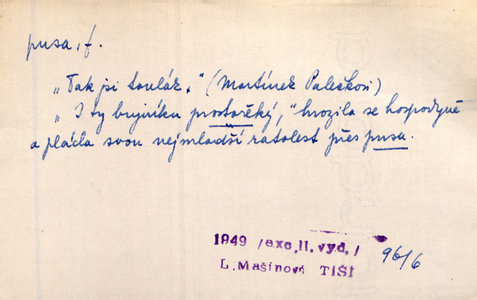 pusa, f.
„Tak ji toulák.“ (Martínek Paleškovi)
„I ty bujníku prostověký,“ hrozila se hospodyně
a plácla svou nejmladší ratolest přes pusu.
1949 /exc, II. vyd, /
L. Mašínová TIŠÍ
96/6